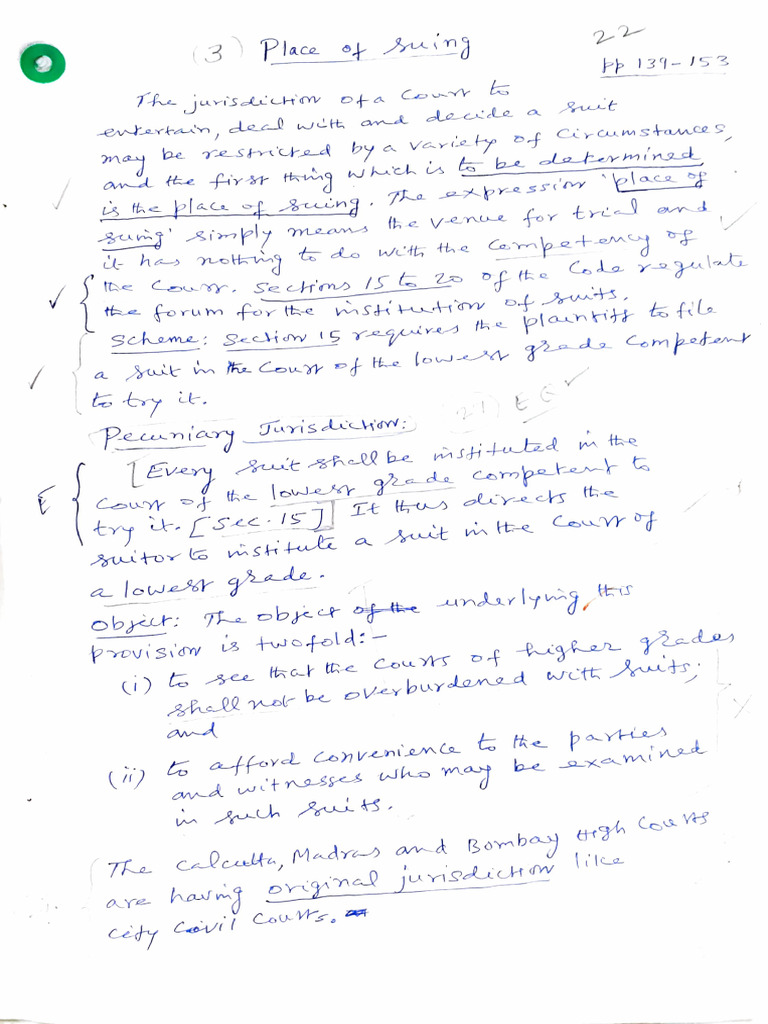 (3) Place of suing
22
pp 139-153
The jurisdiction of a Court to
entertain, deal with and decide a suit
may be restricted by a variety of circumstances,
and the first thing which is to be determined
is the place of suing. The expression 'place of
suing' simply means the venue for trial and
it has nothing to do with the competency of
the Court. Sections 15 to 20 of the Code regulate
the forum for the institution of suits.
Scheme: Section 15 requires the plaintiff to file
a suit in the Court of the lowest grade competent
to try it.
Pecuniary Jurisdiction:
[Every suit shall be instituted in the
E
Court of the lowest grade competent to
try it. [Sec. 15]] It thus directs the
suitor to institute a suit in the Court of
a lowest grade.
Object: The object of the underlying this
provision is twofold:-
(i) to see that the Courts of higher grades
shall not be overburdened with suits;
and
(ii) to afford convenience to the parties
and witnesses who may be examined
in such suits.
The Calcutta, Madras and Bombay High Courts
are having original jurisdiction like
City Civil Courts.